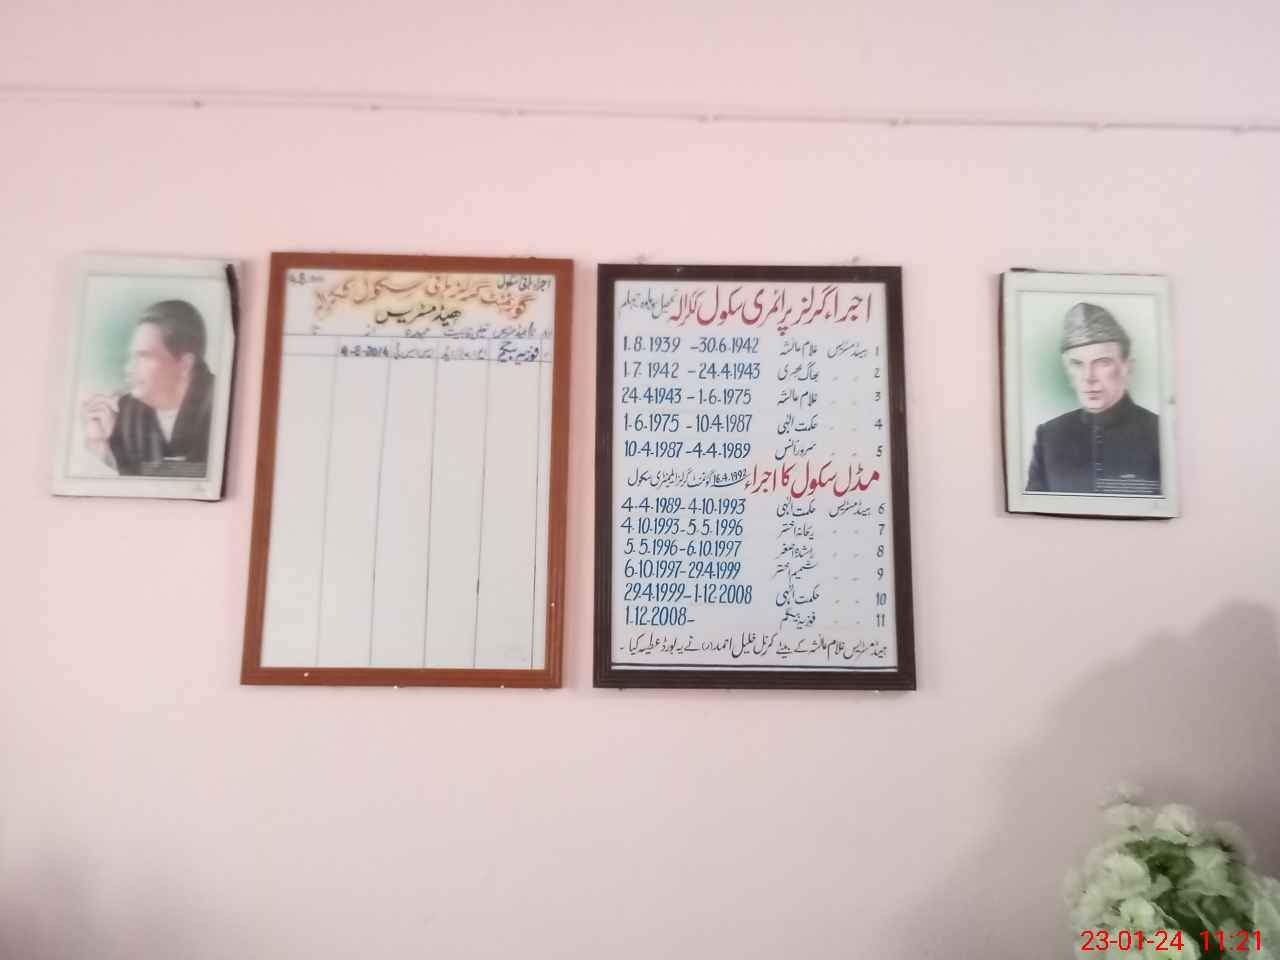 اجراء ہائی سکول
گورنمنٹ گرلز ہائی سکول ککرالہ
ھیڈ مسٹریس
نام ہیڈمسٹریس تعلیمی قابلیت عہدہ از تا
فوزیہ بیگم 4-8-2014
اجراء گرلز پرائمری سکول ککرالہ تحصیل پنڈدادنخان جہلم
1 ہیڈمسٹریس غلام عائشہ 1.8.1939 -30.6.1942
2 " " بھاگ بھری 1.7.1942 -24.4.1943
3 " " غلام عائشہ 24.4.1943 -1.6.1975
4 " " حکمت الٰہی 1-6-1975 -10.4.1987
5 " " سرور انس 10.4.1987-4.4.1989
مڈل سکول کا اجراء 16.4.1992 گورنمنٹ گرلز ایلیمنٹری سکول
6 ہیڈمسٹریس حکمت الٰہی 4-4-1989-4.10.1993
7 " " ریحانہ اختر 4.10.1993-5.5.1996
8 " " راشدہ اصغر 5.5.1996-6.10.1997
9 " " شمیم اختر 6.10.1997-29.4.1999
10 " " حکمت الٰہی 29.4.1999-1.12.2008
11 " " فوزیہ بیگم 1.12.2008-
ہیڈمسٹریس غلام عائشہ کے بیٹے کرنل خلیل احمد (ر) نے یہ بورڈ عطیہ کیا ۔
23-01-24 11:21